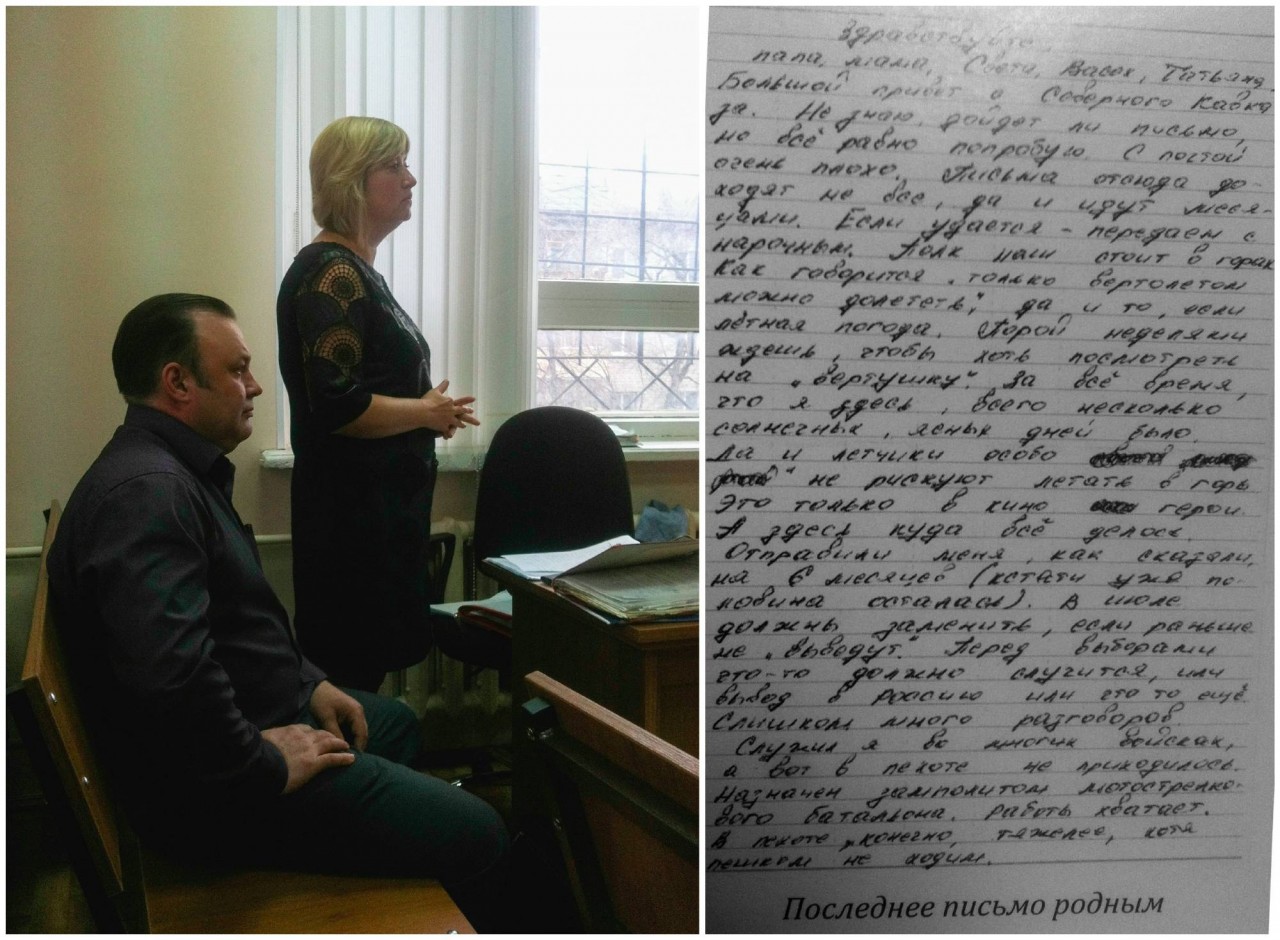 Здравствуйте,
папа, мама, Света, Васек, Татьяна.
Большой привет с Северного Кавка
за. Не знаю, дойдет ли письмо,
но всё равно попробую. С постой
очень плохо. Письма отсюда до-
ходят не все, да и идут меся-
цами. Если удается - передаем с
нарочным. Полк наш стоит в горах
Как говорится „только вертолетом
можно долететь", да и то, если
лётная погода. Порой неделями
ждешь, чтобы хоть посмотреть
на „вертушку". За всё время,
что я здесь, всего несколько
солнечных, ясных дней было.
Да и летчики особо
не рискуют летать в горы
Это только в кино герои.
А здесь куда всё делось.
Отправили меня, как сказали,
на 6 месяцев (кстати уже по-
ловина осталась). В июле
должны заменить, если раньше
не „выведут". Перед выборами
что-то должно случится, или
вывод в Россию или что то ещё
Слишком много разговоров.
Служил я во многих войсках,
а вот в пехоте не приходилось.
Назначен замполитом мотострелко-
вого батальона. Работы хватает.
В пехоте, конечно, тяжелее, хотя
пешком не ходим.
Последнее письмо родным